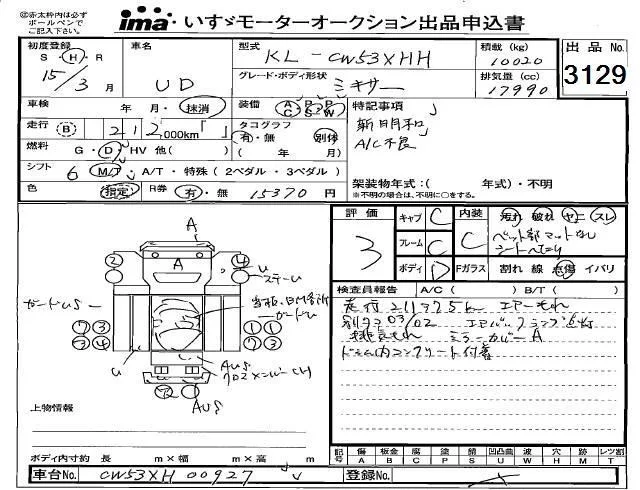 ㊟赤太枠内は必ず
ボールペンで
ご記入下さい。
ima・いすゞモーターオークション出品申込書
初度登録 S・H・R 15/3月
車名 UD
型式 KL-CW53XHH
グレード・ボディ形状 ミキサー
積載(kg) 10020
排気量(cc) 17990
出品No. 3129
車検 年 月・抹消
走行 B 212,000km「 」
燃料 G・D・HV 他( )
シフト 6 M/T・A/T・特殊(2ペダル・3ペダル)
色 指定 R券 有・無 15370円
装備 A/C P/S P/W
タコグラフ 有・無 別体
( 年 月)
特記事項
新明和
A/C不良
架装物年式:( 年式)・不明
※不明の場合は、不明に○をする。
評価 3
キャブ C
フレーム C
ボディ D
内装 C 汚れ 破れ ヤニ スレ
ベット部マットなし
シートへたり
Fガラス 割れ 線 点傷 イバリ
検査員報告 A/C( ) B/T( )
走行211975km エアーもれ
03/02 エアバックランプ
排気もれ ミラーカバーA
ドラム内コンクリート付着
A
A
2
4
U
ステー
ガードUS
ガードU
7 3
3 4
1 1
7 3
U
AUS
クロスメンバー
AUS
上物情報
ボディ内寸約 長 m×幅 m×高 m
記号 傷 A 板金 B 腐 C 塗 P 錆 S 凹凸曲 U 波 W 穴 H 跡 M レツ割 T
車台No. CW53XH 00927
登録No.